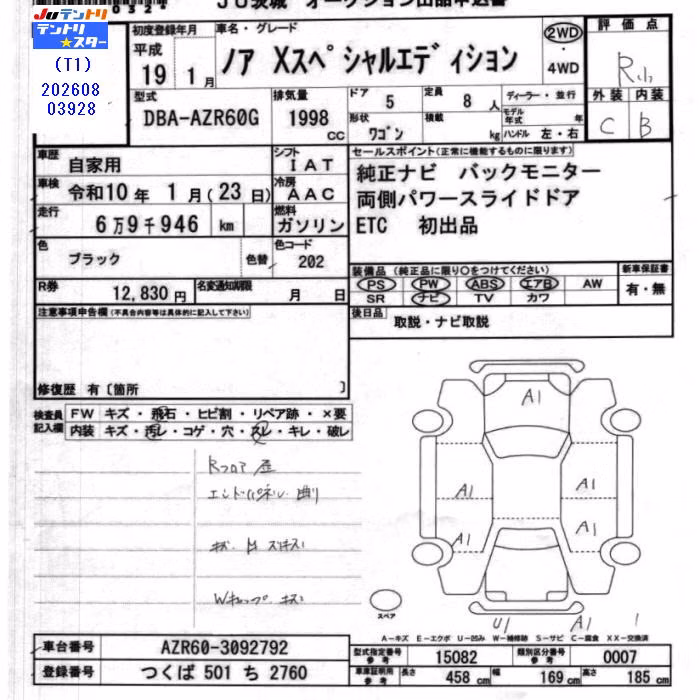 0322
JU茨城 オークション出品申込書
Juテントリ
テントリ★スター
(T1)
202608
03928
初度登録年月
平成
19 1月
車名・グレード
ノア Xスペシャルエディション
2WD
・
4WD
評価点
R
外装 内装
C B
型式
DBA-AZR60G
排気量
1998 CC
ドア
5
定員
8 人
形状
ワゴン
積載
kg
ディーラー・並行
モデル年式 年
ハンドル 左・右
車歴
自家用
シフト
IAT
車検
令和10年 1月(23日)
冷房
AAC
走行
6万9千946 km
燃料
ガソリン
色
ブラック
色替
色コード
202
R券
12,830円
名変通知期限
月 日
セールスポイント(正常に機能するものに限ります)
純正ナビ バックモニター
両側パワースライドドア
ETC 初出品
装備品(純正品に限り○をつけてください)
PS PW ABS エアB AW
SR ナビ TV カワ
新車保証書
有・無
後日品
取説・ナビ取説
注意事項申告欄(不具合内容等は具体的に記入して下さい)
修復歴 有〔箇所 〕
検査員記入欄
FW キズ・飛石・ヒビ割・リペア跡・×要
内装 キズ・汚レ・コゲ・穴・スレ・キレ・破レ
Rフロア
エンドパネル 曲り
Wキャップ キズ
A1
A1
A1
A1
A1
U1
A1
1
スペア
A-キズ E-エクボ U-凹み W-補修跡 S-サビ C-腐食 XX-交換済
車台番号
AZR60-3092792
登録番号
つくば 501 ち 2760
型式指定番号
参考
15082
類別区分番号
参考
0007
車庫証明用
参考
長さ 458 cm 幅 169 cm 高さ 185 cm